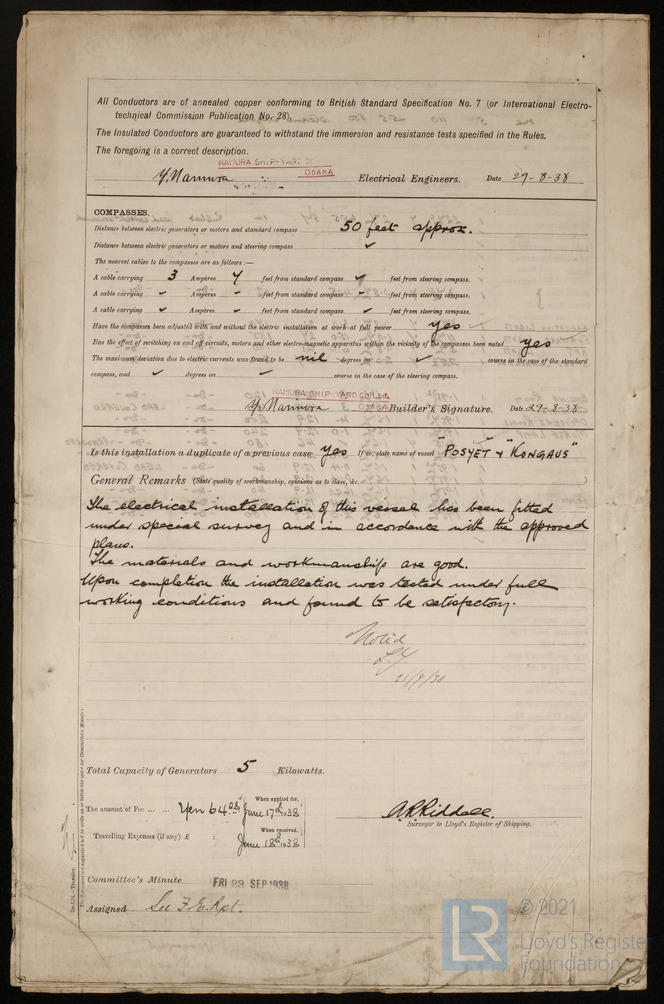 All Conductors are of annealed copper conforming to British Standard Specification No. 7 (or International Electro-
technical Commission Publication No. 28).
The Insulated Conductors are guaranteed to withstand the immersion and resistance tests specified in the Rules.
The foregoing is a correct description.
NAMURA SHIP-YARD
OSAKA
Y. Namura Electrical Engineers. Date 29-8-38
COMPASSES.
Distance between electric generators or motors and standard compass 50 feet approx.
Distance between electric generators or motors and steering compass ✓
The nearest cables to the compasses are as follows:—
A cable carrying 3 Ampères 7 feet from standard compass ✓ feet from steering compass.
A cable carrying ✓ Ampères - feet from standard compass - feet from steering compass.
A cable carrying ✓ Ampères - feet from standard compass ✓ feet from steering compass.
Have the compasses been adjusted with and without the electric installation at work at full power yes
Has the effect of switching on and off circuits, motors and other electro-magnetic apparatus within the vicinity of the compasses been noted yes
The maximum deviation due to electric currents was found to be nil degrees on ✓ course in the case of the standard
compass, and ✓ degrees on ✓ course in the case of the steering compass.
NAMURA SHIP-YARD Co Ltd.
OSAKA
Y. Namura Builder's Signature. Date 29-8-38
Is this installation a duplicate of a previous case yes If so, state name of vessel "POSYET & "KONGAUS"
General Remarks (State quality of workmanship, opinions as to class, &c.)
The electrical installation of this vessel has been fitted
under special survey and in accordance with the approved
plans.
The materials and workmanship are good.
Upon completion the installation was tested under full
working conditions and found to be satisfactory.
Noted
21/9/38
Total Capacity of Generators 5 Kilowatts.
The amount of Fee ... ... Yen 64.28 When applied for, June 17th 1938
Travelling Expenses (if any) £ : When received, June 18th 1938
A.R. Riddell.
Surveyor to Lloyd's Register of Shipping.
Committee's Minute FRI 23 SEP 1938
Assigned See F.E. Rpt.
LR
© 2021
Lloyd's Register
Foundation